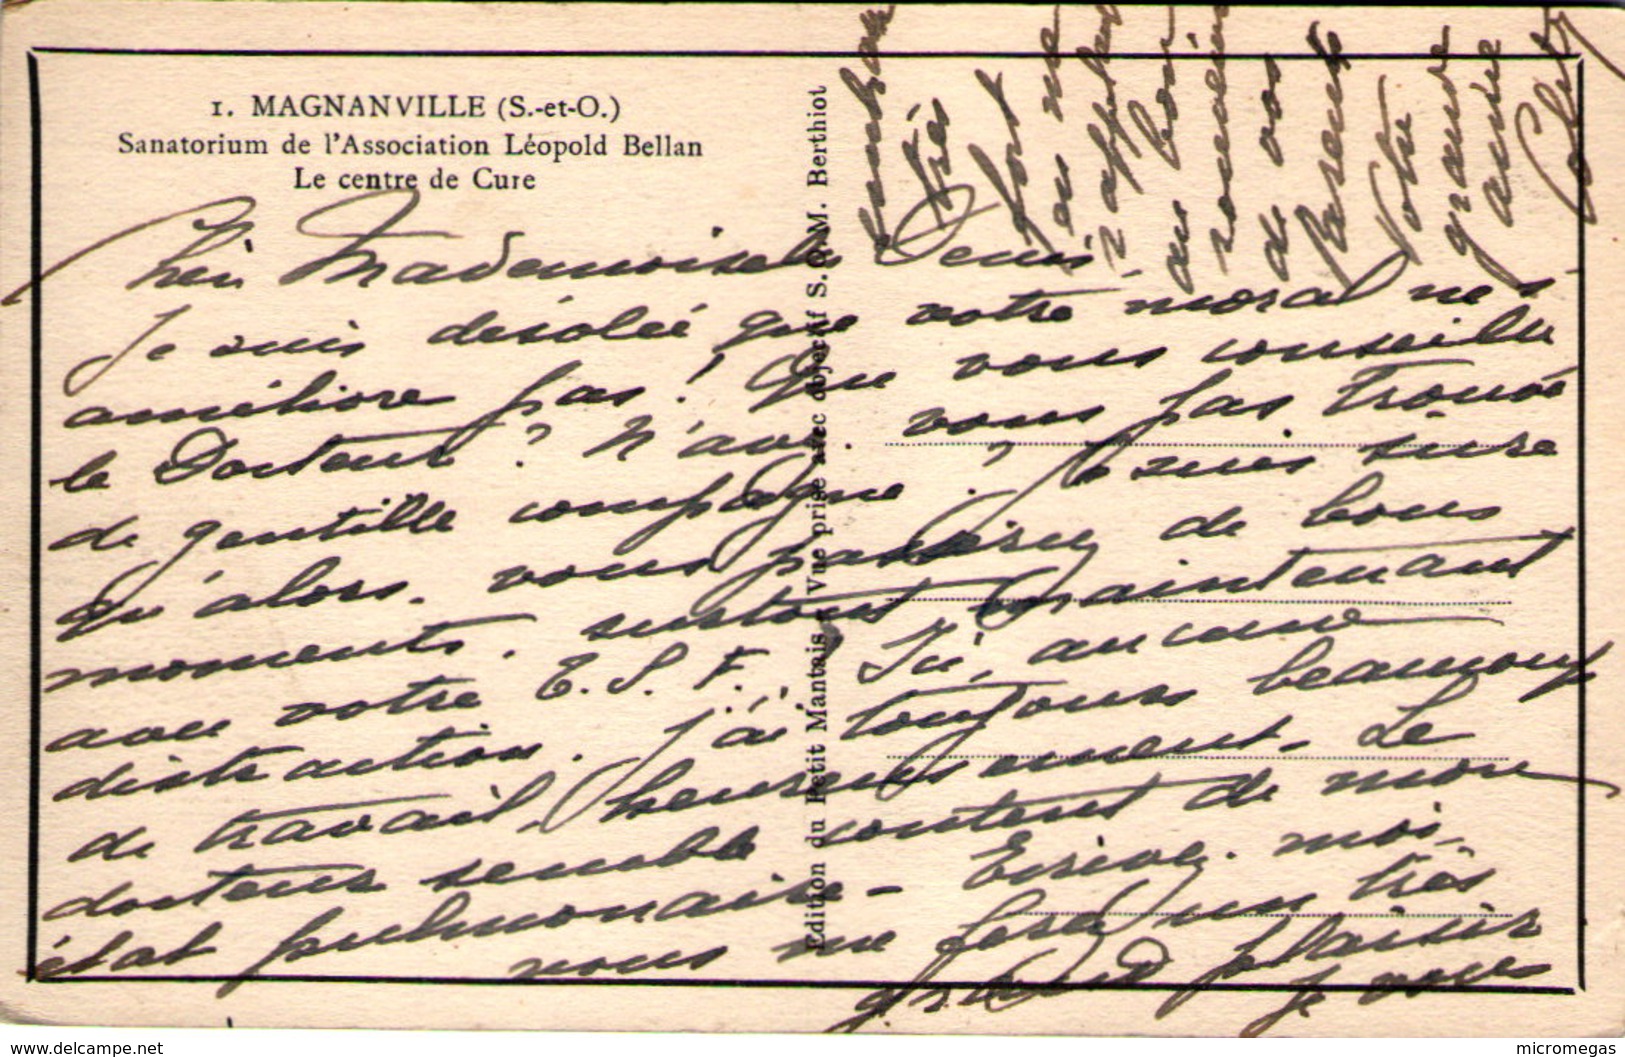 1. MAGNANVILLE (S.-et-O.)
Sanatorium de l'Association Léopold Bellan
Le centre de Cure
Edition du Petit Mantais - Vue prise avec objectif S.O.M. Berthiot
Chère Mademoiselle Denis,
Je suis désolée que votre moral ne s'
améliore pas ! Que vous conseille
le Docteur ? N'avez-vous pas trouvé
de gentille compagne ? Je suis sûre
qu'alors, vous passeriez de bons
moments, surtout maintenant
avec votre T.S.F. Ici, aucune
distraction. J'ai toujours beaucoup
de travail, heureusement. Le
docteur semble content de mon
état pulmonaire - Ecrivez-moi,
vous me ferez un très
grand plaisir
Je vous
embrasse
très
fort
en me
rappelant
au bon
souvenir
de vos
Parents
Votre
grande
amie
www.delcampe.net
micromegas